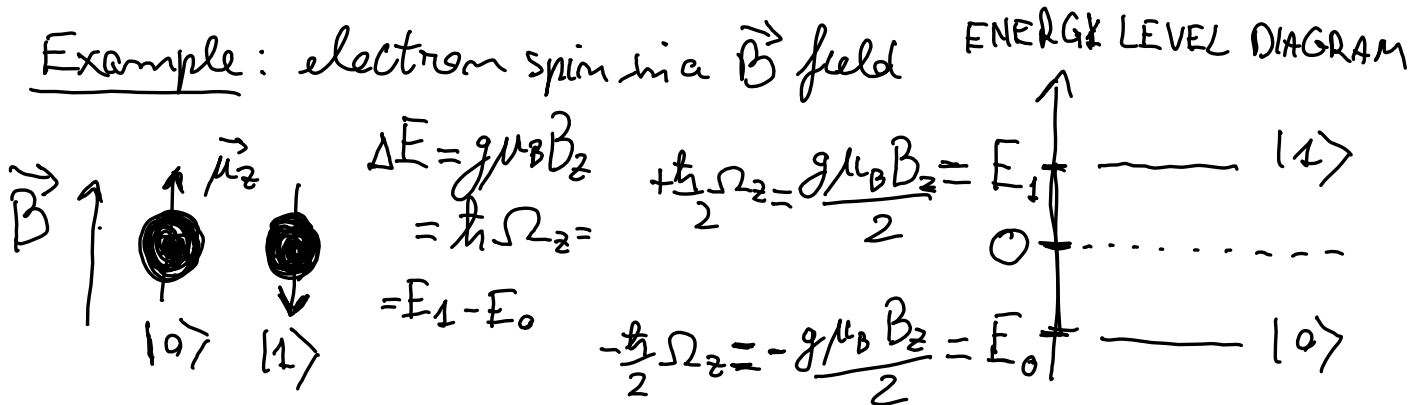 Example: electron spin in a B⃗ field
ENERGY LEVEL DIAGRAM
B⃗
μ⃗_z
|0⟩ |1⟩
ΔE = gμ_B B_z
= ħΩ_z =
= E_1 - E_0
+ħ/2 Ω_z = gμ_B B_z/2 = E_1
|1⟩
0
-ħ/2 Ω_z = -gμ_B B_z/2 = E_0
|0⟩